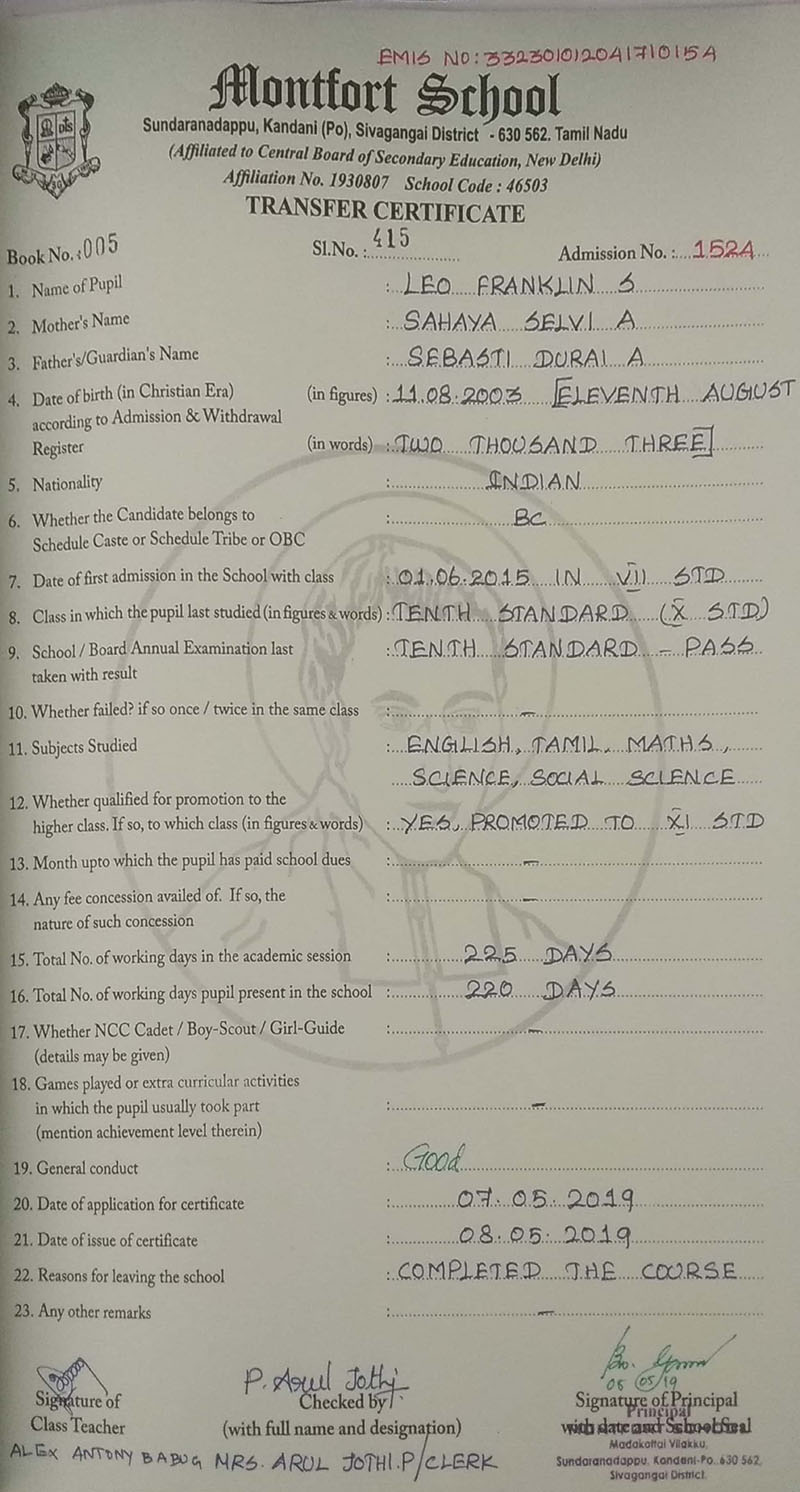 EMIS NO: 332301012041710154
Montfort School
Sundaranadappu, Kandani (Po), Sivagangai District - 630 562. Tamil Nadu
(Affiliated to Central Board of Secondary Education, New Delhi)
Affiliation No. 1930807 School Code : 46503
TRANSFER CERTIFICATE
Book No. : 005 Sl.No. : 415 Admission No. : 1524
1. Name of Pupil : LEO FRANKLIN S
2. Mother's Name : SAHAYA SELVI A
3. Father's/Guardian's Name : SEBASTI DURAI A
4. Date of birth (in Christian Era) (in figures) : 11.08.2003 [ELEVENTH AUGUST
according to Admission & Withdrawal
Register (in words) : TWO THOUSAND THREE]
5. Nationality : INDIAN
6. Whether the Candidate belongs to : BC
Schedule Caste or Schedule Tribe or OBC
7. Date of first admission in the School with class : 01.06.2015 IN VII STD
8. Class in which the pupil last studied (in figures & words) : TENTH STANDARD (X STD)
9. School / Board Annual Examination last : TENTH STANDARD - PASS
taken with result
10. Whether failed? if so once / twice in the same class : -
11. Subjects Studied : ENGLISH, TAMIL, MATHS,
SCIENCE, SOCIAL SCIENCE
12. Whether qualified for promotion to the
higher class. If so, to which class (in figures & words) : YES, PROMOTED TO XI STD
13. Month upto which the pupil has paid school dues : -
14. Any fee concession availed of. If so, the : -
nature of such concession
15. Total No. of working days in the academic session : 225 DAYS
16. Total No. of working days pupil present in the school : 220 DAYS
17. Whether NCC Cadet / Boy-Scout / Girl-Guide : -
(details may be given)
18. Games played or extra curricular activities
in which the pupil usually took part : -
(mention achievement level therein)
19. General conduct : Good
20. Date of application for certificate : 07.05.2019
21. Date of issue of certificate : 08.05.2019
22. Reasons for leaving the school : COMPLETED THE COURSE
23. Any other remarks : -
P. Arul Jothi
08/05/19
Signature of Checked by Signature of Principal
Principal
Class Teacher (with full name and designation) with date and School Seal
ALEX ANTONY BABU G MRS. ARUL JOTHI.P/CLERK
Madakottai Vilakku,
Sundaranadappu, Kandani-Po..630 562,
Sivagangai District.